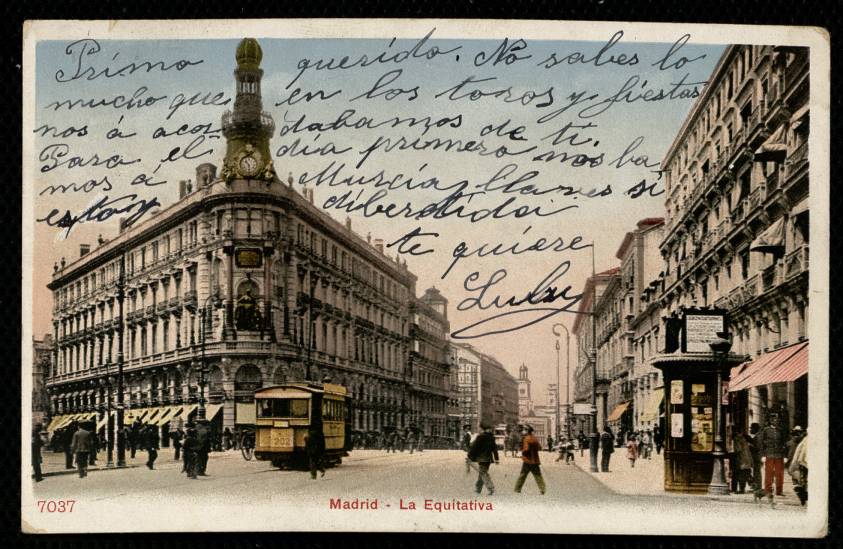 Primo querido. No sabes lo
mucho que en los toros y fiestas
nos á acor dabamos de ti.
Para el día primero nos ba
mos á Murcia
estoy diberdida
te quiere
202
7037
Madrid - La Equitativa